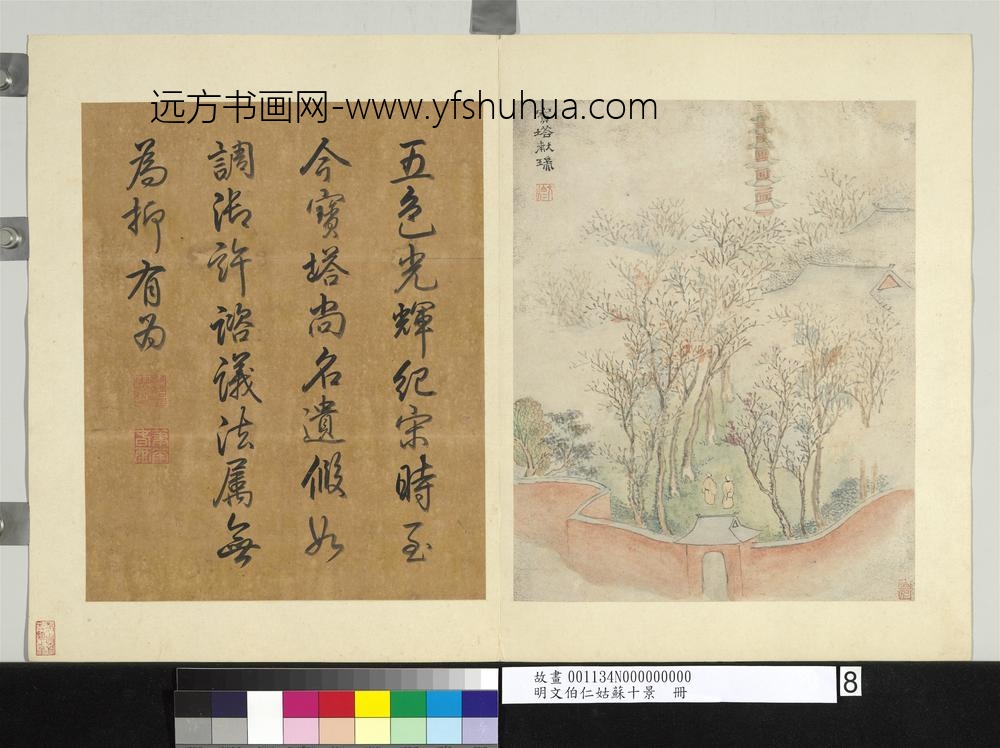 远方书画网-www.yfshuhua.com
寶塔献瑞
五色光輝紀宋時至
今寶塔尚名遺假如
調御許諮議法屬無
為抑有为
故畫 001134N000000000
明文伯仁姑蘇十景 冊
8